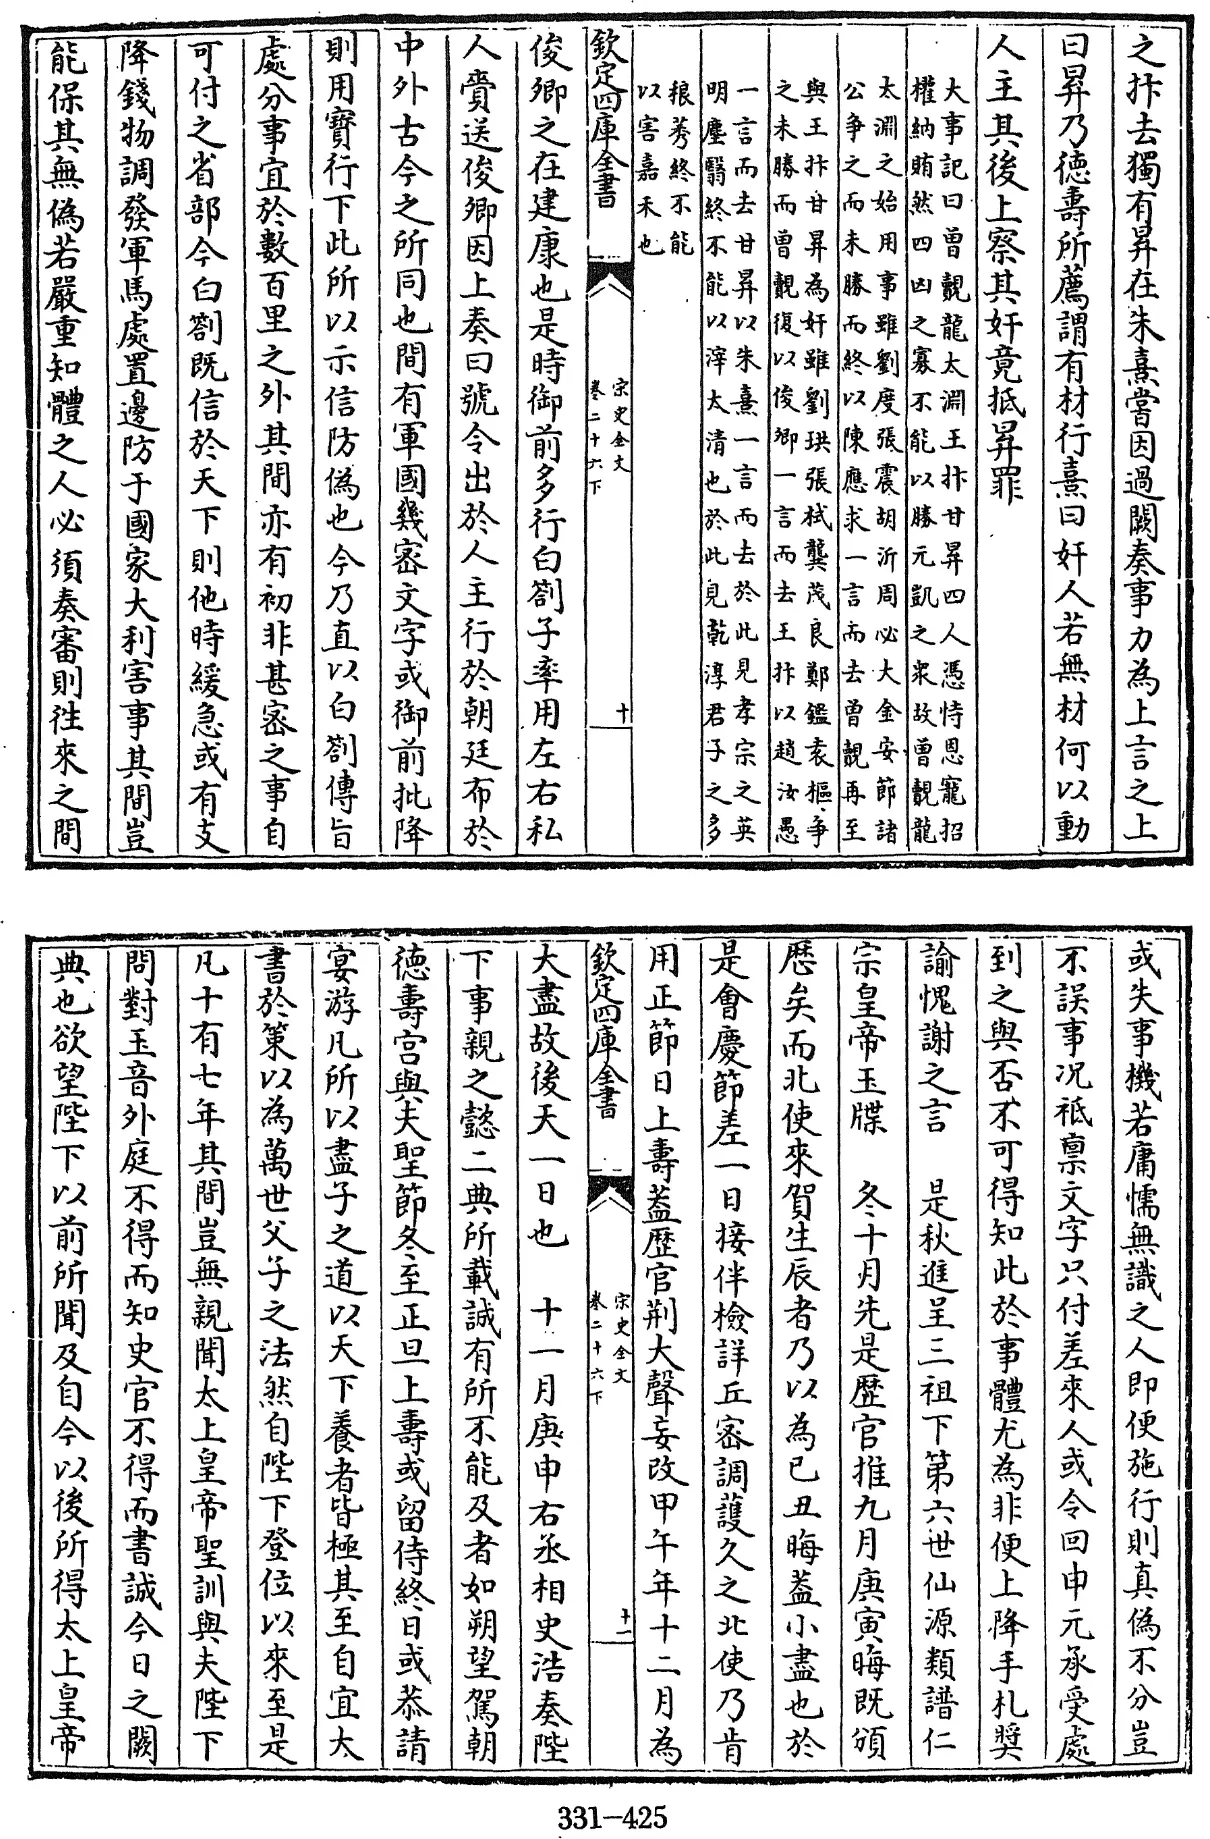 之抃去獨有昇在朱熹嘗因過闕奏事力為上言之上
曰昇乃德壽所薦謂有材行熹曰奸人若無材何以動
人主其後上察其奸竟抵昇罪
大事記曰曾覿龍太淵王抃甘昇四人憑恃恩寵招
權納賄然四凶之寡不能以勝元凱之衆故曾覿龍
太淵之始用事雖劉度張震胡沂周必大金安節諸
公争之而未勝而終以陳應求一言而去曾覿再至
與王抃甘昇為奸雖劉珙張栻龔茂良鄭鑑袁樞争
之未勝而曾覿復以俊卿一言而去王抃以趙汝愚
一言而去甘昇以朱熹一言而去於此見孝宗之英
明塵翳終不能以滓太清也於此見乾淳君子之多
稂莠終不能
以害嘉禾也
欽定四庫全書
宋史全文
卷二十六下
十
俊卿之在建康也是時御前多行白劄子率用左右私
人賫送俊卿因上奏曰號令出於人主行於朝廷布於
中外古今之所同也間有軍國幾密文字或御前批降
則用寶行下此所以示信防偽也今乃直以白劄傳旨
處分事宜於數百里之外其間亦有初非甚密之事自
可付之省部今白劄既信於天下則他時緩急或有支
降錢物調發軍馬處置邊防于國家大利害事其間豈
能保其無偽若嚴重知體之人必須奏審則徃來之間
或失事機若庸懦無識之人即便施行則真偽不分豈
不誤事况祗禀文字只付差來人或令回申元承受處
到之與否不可得知此於事體尤為非便上降手札奬
諭愧謝之言　是秋進呈三祖下第六世仙源類譜仁
宗皇帝玉牒　冬十月先是歴官推九月庚寅晦既頒
歴矣而北使來賀生辰者乃以為己丑晦蓋小盡也於
是會慶節差一日接伴檢詳丘密調護久之北使乃肯
用正節日上壽蓋歴官荆大聲妄改甲午年十二月為
欽定四庫全書
宋史全文
卷二十六下
十一
大盡故後天一日也　十一月庚申右丞相史浩奏陛
下事親之懿二典所載誠有所不能及者如朔望駕朝
德壽宫與夫聖節冬至正旦上壽或留侍終日或恭請
宴游凡所以盡子之道以天下養者皆極其至自宜大
書於策以為萬世父子之法然自陛下登位以來至是
凡十有七年其間豈無親聞太上皇帝聖訓與夫陛下
問對玉音外庭不得而知史官不得而書誠今日之闕
典也欲望陛下以前所聞及自今以後所得太上皇帝
331-425